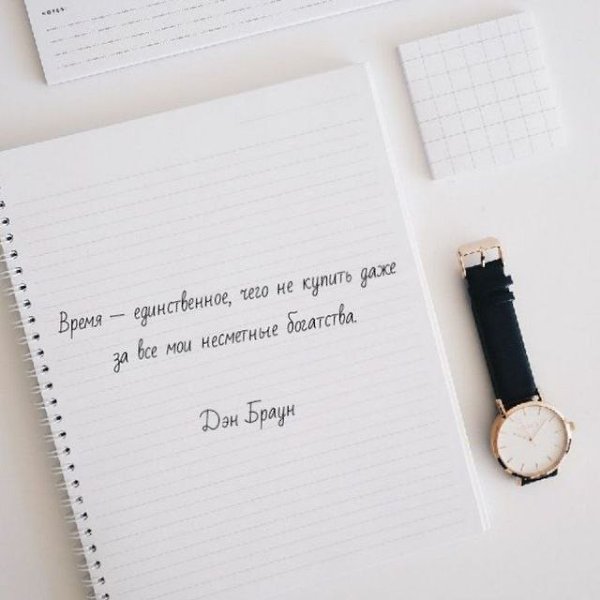 NOTES:
Время — единственное, чего не купить даже
за все мои несметные богатства.
Дэн Браун